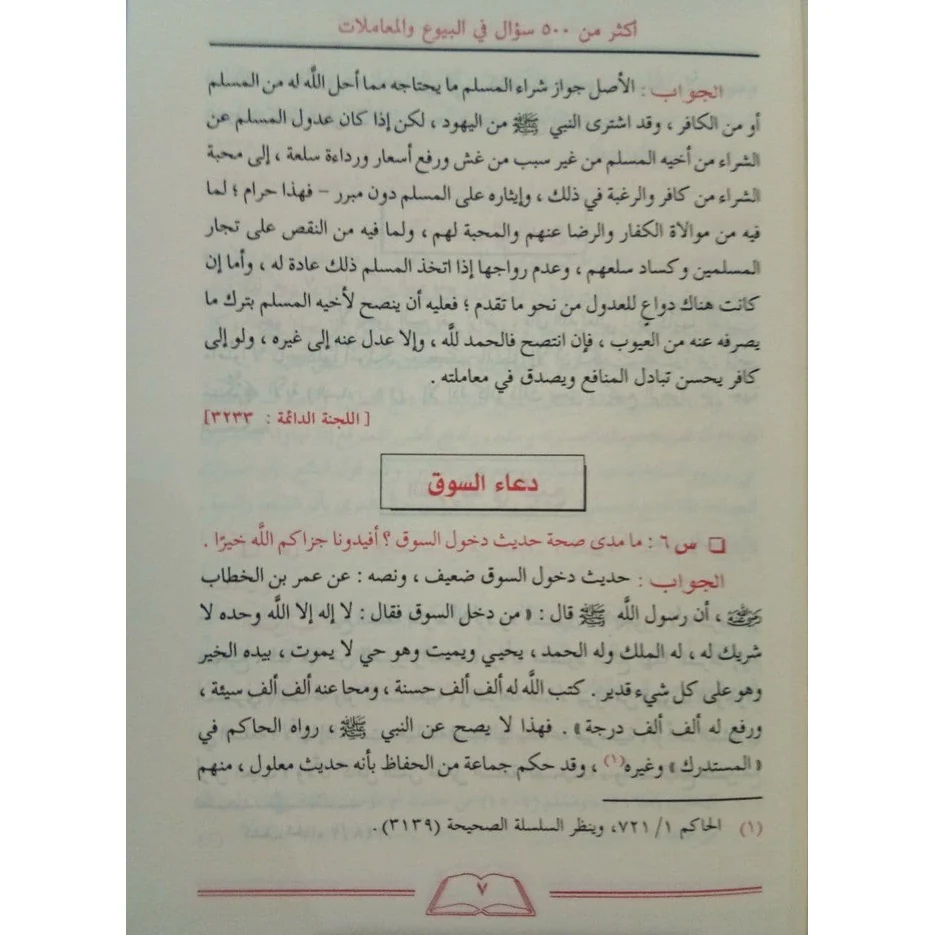 أكثر من ٥٠٠ سؤال في البيوع والمعاملات
الجواب : الأصل جواز شراء المسلم ما يحتاجه مما أحل اللَّه له من المسلم
أو من الكافر ، وقد اشترى النبي ﷺ من اليهود ، لكن إذا كان عدول المسلم عن
الشراء من أخيه المسلم من غير سبب من غش ورفع أسعار ورداءة سلعة ، إلى محبة
الشراء من كافر والرغبة في ذلك ، وإيثاره على المسلم دون مبرر – فهذا حرام ؛ لما
فيه من موالاة الكفار والرضا عنهم والمحبة لهم ، ولما فيه من النقص على تجار
المسلمين وكساد سلعهم ، وعدم رواجها إذا اتخذ المسلم ذلك عادة له ، وأما إن
كانت هناك دواعٍ للعدول من نحو ما تقدم ؛ فعليه أن ينصح لأخيه المسلم بترك ما
يصرفه عنه من العيوب ، فإن انتصح فالحمد للَّه ، وإلا عدل عنه إلى غيره ، ولو إلى
كافر يحسن تبادل المنافع ويصدق في معاملته .
[ اللجنة الدائمة : ٣٢٣٣]
دعاء السوق
❑ س ٦ : ما مدى صحة حديث دخول السوق ؟ أفيدونا جزاكم اللَّه خيرًا .
الجواب : حديث دخول السوق ضعيف ، ونصه : عن عمر بن الخطاب
رضي الله عنه ، أن رسول اللَّه ﷺ قال : « من دخل السوق فقال : لا إله إلا اللَّه وحده لا
شريك له ، له الملك وله الحمد ، يحيي ويميت وهو حي لا يموت ، بيده الخير
وهو على كل شيء قدير . كتب اللَّه له ألف ألف حسنة ، ومحا عنه ألف ألف سيئة ،
ورفع له ألف ألف درجة » . فهذا لا يصح عن النبي ﷺ ، رواه الحاكم في
« المستدرك » وغيره(١) ، وقد حكم جماعة من الحفاظ بأنه حديث معلول ، منهم
(١) الحاكم ١/ ٧٢١، وينظر السلسلة الصحيحة (٣١٣٩).
٧